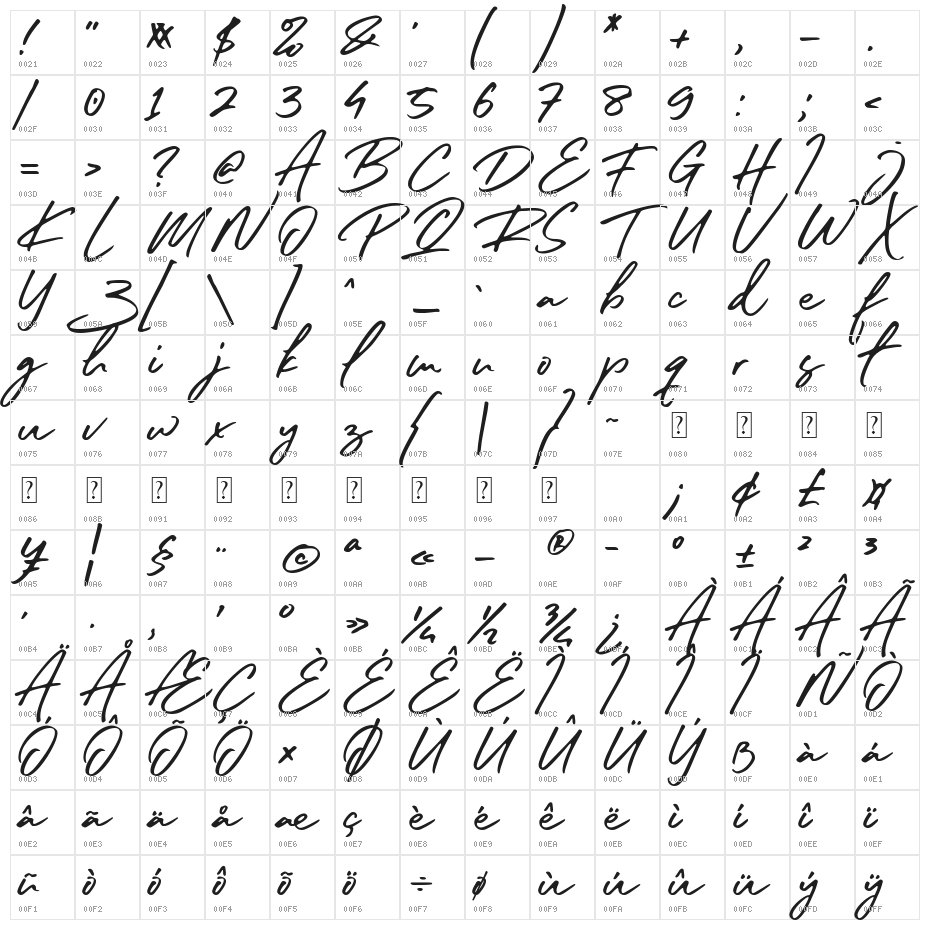 ! " # $ % & ' ( ) * + , - .
0021 0022 0023 0024 0025 0026 0027 0028 0029 002A 002B 002C 002D 002E
/ 0 1 2 3 4 5 6 7 8 9 : ; <
002F 0030 0031 0032 0033 0034 0035 0036 0037 0038 0039 003A 003B 003C
= > ? @ A B C D E F G H I J
003D 003E 003F 0040 0041 0042 0043 0044 0045 0046 0047 0048 0049 004A
K L M N O P Q R S T U V W X
004B 004C 004D 004E 004F 0050 0051 0052 0053 0054 0055 0056 0057 0058
Y Z [ \ ] ^ _ ` a b c d e f
0059 005A 005B 005C 005D 005E 005F 0060 0061 0062 0063 0064 0065 0066
g h i j k l m n o p q r s t
0067 0068 0069 006A 006B 006C 006D 006E 006F 0070 0071 0072 0073 0074
u v w x y z { | } ~ ? ? ? ?
0075 0076 0077 0078 0079 007A 007B 007C 007D 007E 0080 0082 0084 0085
? ? ? ? ? ? ? ? ? ¡ ¢ £ ¤
0086 008B 0091 0092 0093 0094 0095 0096 0097 00A0 00A1 00A2 00A3 00A4
¥ ¦ § ¨ © ª « - ® ¯ ° ± ² ³
00A5 00A6 00A7 00A8 00A9 00AA 00AB 00AD 00AE 00AF 00B0 00B1 00B2 00B3
´ · ¸ ¹ º » ¼ ½ ¾ ¿ À Á Â Ã
00B4 00B7 00B8 00B9 00BA 00BB 00BC 00BD 00BE 00BF 00C0 00C1 00C2 00C3
Ä Å Æ Ç È É Ê Ë Ì Í Î Ï Ñ Ò
00C4 00C5 00C6 00C7 00C8 00C9 00CA 00CB 00CC 00CD 00CE 00CF 00D1 00D2
Ó Ô Õ Ö × Ø Ù Ú Û Ü Ý ß à á
00D3 00D4 00D5 00D6 00D7 00D8 00D9 00DA 00DB 00DC 00DD 00DF 00E0 00E1
â ã ä å æ ç è é ê ë ì í î ï
00E2 00E3 00E4 00E5 00E6 00E7 00E8 00E9 00EA 00EB 00EC 00ED 00EE 00EF
ñ ò ó ô õ ö ÷ ø ù ú û ü ý ÿ
00F1 00F2 00F3 00F4 00F5 00F6 00F7 00F8 00F9 00FA 00FB 00FC 00FD 00FF